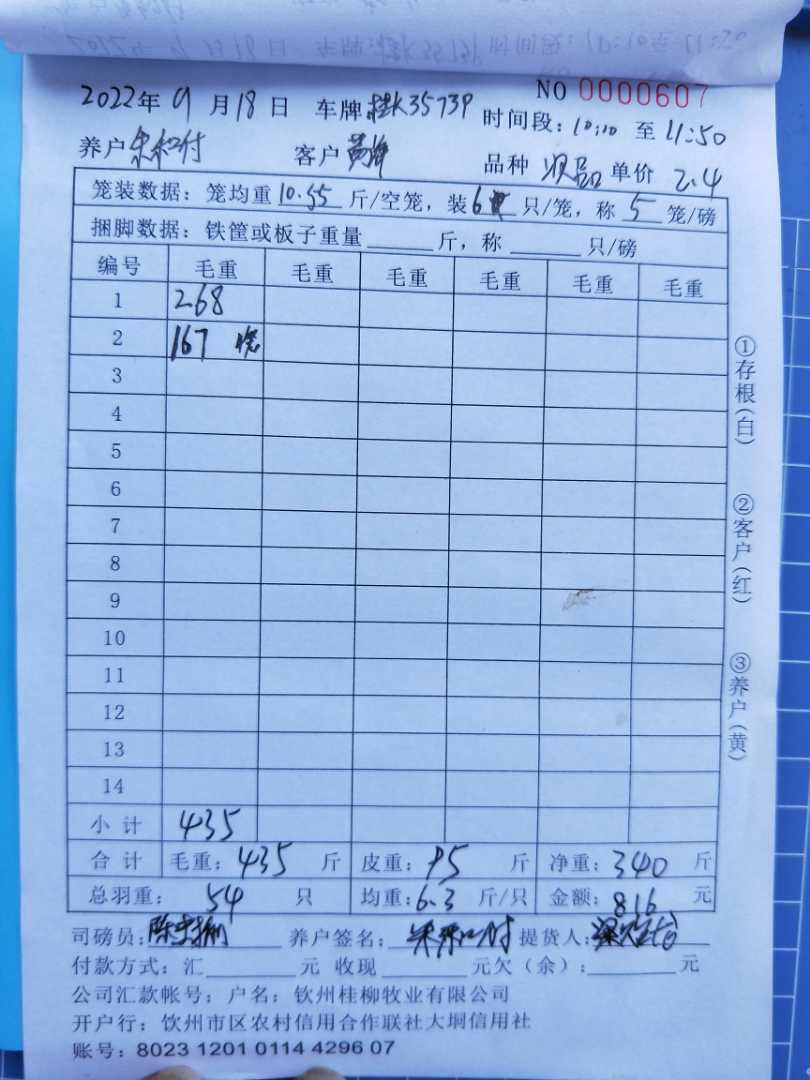 NO 0000607
2022年 9 月 18 日 车牌:桂K3573P 时间段: 10:10 至 11:50
养户 客户 品种 次品 单价 2.4
笼装数据: 笼均重 10.55 斤/空笼, 装 6 只/笼, 称 5 笼/磅
捆脚数据: 铁筐或板子重量______斤, 称______只/磅
编号 毛重 毛重 毛重 毛重 毛重 毛重
1 268
2 167
3
4
5
6
7
8
9
10
11
12
13
14
小计 435
合计 毛重: 435 斤 皮重: 95 斤 净重: 340 斤
总羽重: 54 只 均重: 6.3 斤/只 金额: 816 元
司磅员: 养户签名: 提货人:
付款方式: 汇______元 收现______元欠(余):______元
公司汇款帐号; 户名: 钦州桂柳牧业有限公司
开户行: 饮州市区农村信用合作联社大垌信用社
账号: 8023 1201 0114 4296 07
①存根(白)
②客户(红)
③养户(黄)